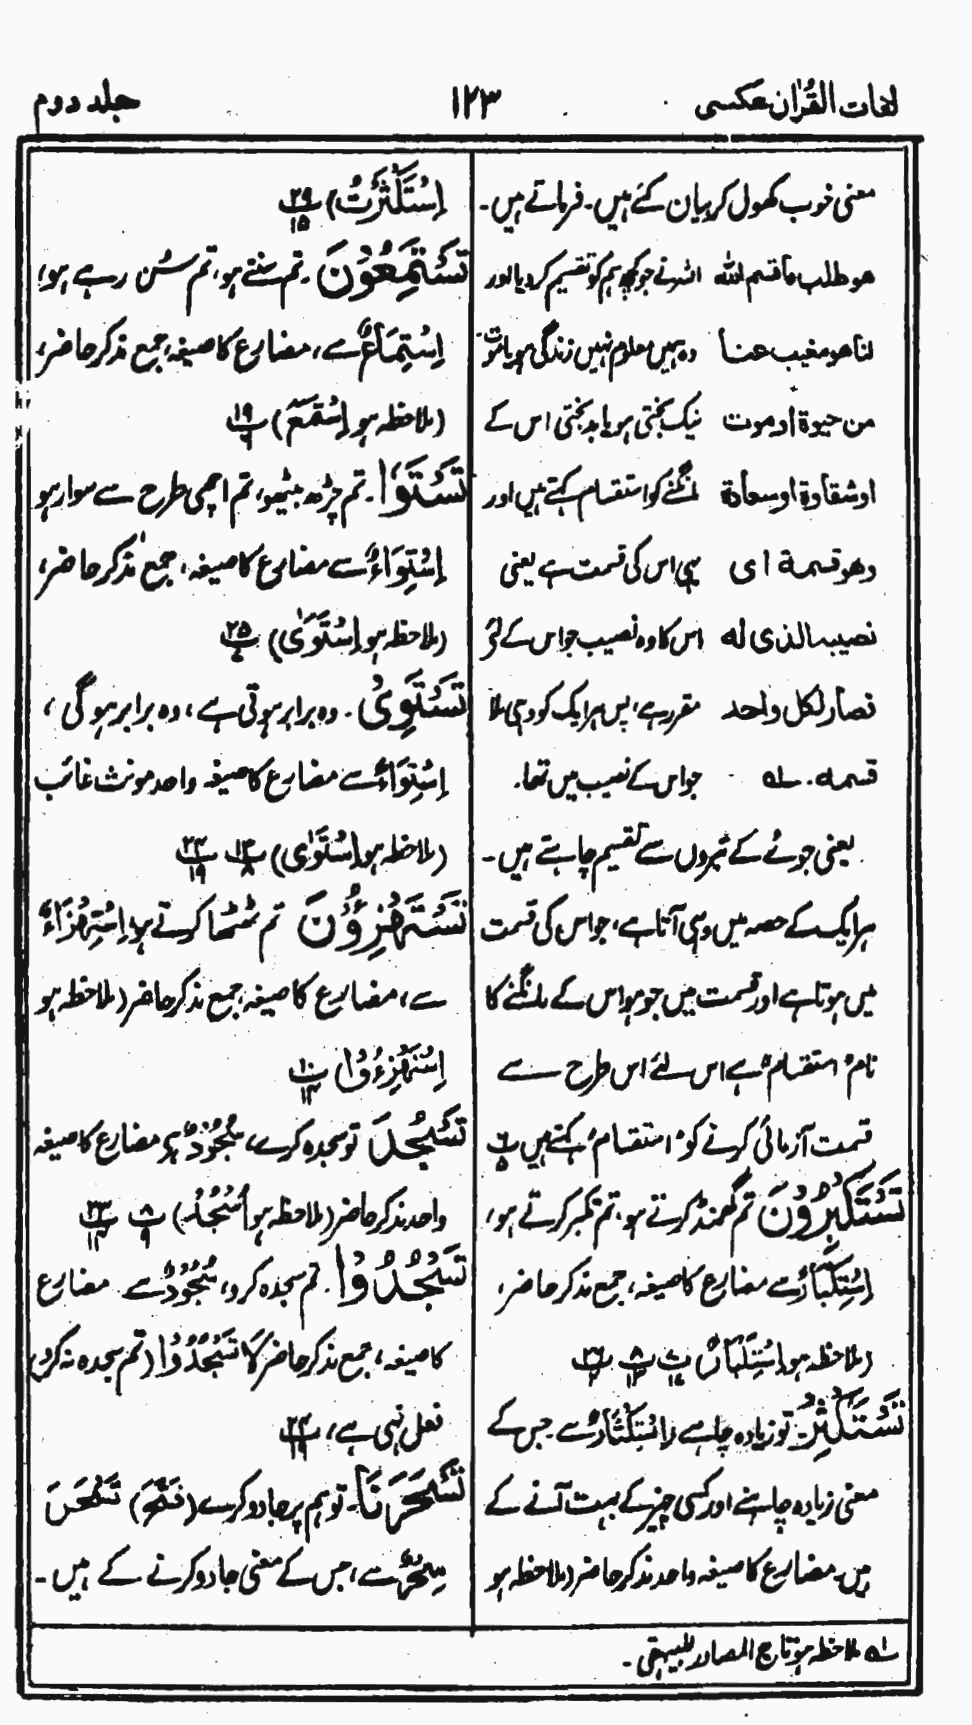 لغات القرآن عکسی ۱۲۳ جلد دوم
معنی خوب کھول کر بیان کئے ہیں۔ فرماتے ہیں۔
هو طلب ما قسم الله اللہ نے جو کچھ ہم کو تقسیم کر دیا اور
لنا هو مغيب عنا وہ ہمیں معلوم نہیں زندگی ہو یا موت
من حيوة او موت نیک بختی ہو یا بدبختی اس کے
او شقاوة او سعادة مانگنے کو استقسام کہتے ہیں اور
وهو قسمة اى یہی اس کی قسمت ہے یعنی
نصيبه الذى له اس کا وہ نصیب جو اس کے لئے
فصار لكل واحد مقرر ہے، پس ہر ایک کو وہی ملا
قسمه. ؎۱ جو اس کے نصیب میں تھا۔
یعنی جوئے کے تیروں سے تقسیم چاہتے ہیں۔
ہر ایک کے حصہ میں وہی آتا ہے، جو اس کی قسمت
میں ہوتا ہے اور قسمت میں جو ہو اس کے مانگنے کا
نام استقسام ہے اس لئے اس طرح سے
قسمت آزمائی کرنے کو استقسام کہتے ہیں پ۶ ۵
تَسْتَكْبِرُوْنَ تم گھمنڈ کرتے ہو، تم تکبر کرتے ہو،
اِسْتِكْبَارٌ سے مضارع کا صیغہ، جمع مذکر حاضر،
(ملاحظہ ہو اِسْتِكْبَارًا) پ۷ ۱۷ پ۸ ۱۲ پ۲۶ ۲
تَسْتَكْثِرُ۔ تو زیادہ چاہے اِسْتِكْثَارٌ سے جس کے
معنی زیادہ چاہنے اور کسی چیز کے بہت آنے کے
ہیں۔ مضارع کا صیغہ واحد مذکر حاضر (ملاحظہ ہو
اِسْتَكْثَرْتُ) پ۲۹ ۱۵
تَسْتَمِعُوْنَ۔ تم سنتے ہو، تم سُن رہے ہو،
اِسْتِمَاعٌ سے، مضارع کا صیغہ جمع مذکر حاضر،
(ملاحظہ ہو اِسْتَمَعَ) پ۱۹ ۶
تَسْتَوٗا۔ تم چڑھ بیٹھو، تم اچھی طرح سے سوار ہو
اِسْتِوَاءٌ سے مضارع کا صیغہ، جمع مذکر حاضر،
(ملاحظہ ہو اِسْتَوٰى) پ۲۵ ۷
تَسْتَوِىْ۔ وہ برابر ہوتی ہے، وہ برابر ہوگی،
اِسْتِوَاءٌ سے مضارع کا صیغہ واحد مونث غائب
(ملاحظہ ہو اِسْتَوٰى) پ۱۳ ۸ پ۲۴ ۱۹
تَسْتَهْزِءُوْنَ تم ٹھٹھا کرتے ہو، اِسْتِهْزَاءٌ
سے، مضارع کا صیغہ، جمع مذکر حاضر (ملاحظہ ہو
اِسْتَهْزِءُوْا) پ۱۰ ۱۴
تَسْجُدَ تو سجدہ کرے، سُجُوْدٌ سے، مضارع کا صیغہ
واحد مذکر حاضر (ملاحظہ ہو اُسْجُدُ) پ۸ ۹ پ۲۳ ۱۴
تَسْجُدُوْا۔ تم سجدہ کرو، سُجُوْدٌ سے۔ مضارع
کا صیغہ، جمع مذکر حاضر لَا تَسْجُدُوْا (تم سجدہ نہ کرو)
فعل نہی ہے، پ۲۴ ۱۹
تَسْحَرَنَا۔ تو ہم پر جادو کرے (فتح) تَسْحَرَ
سِحْرٌ سے، جس کے معنی جادو کرنے کے ہیں۔
؎۱ ملاحظہ ہو تاج المصادر للبیہقی۔